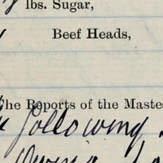 lbs. Sugar,
Beef Heads,
The Reports of the Maste
following